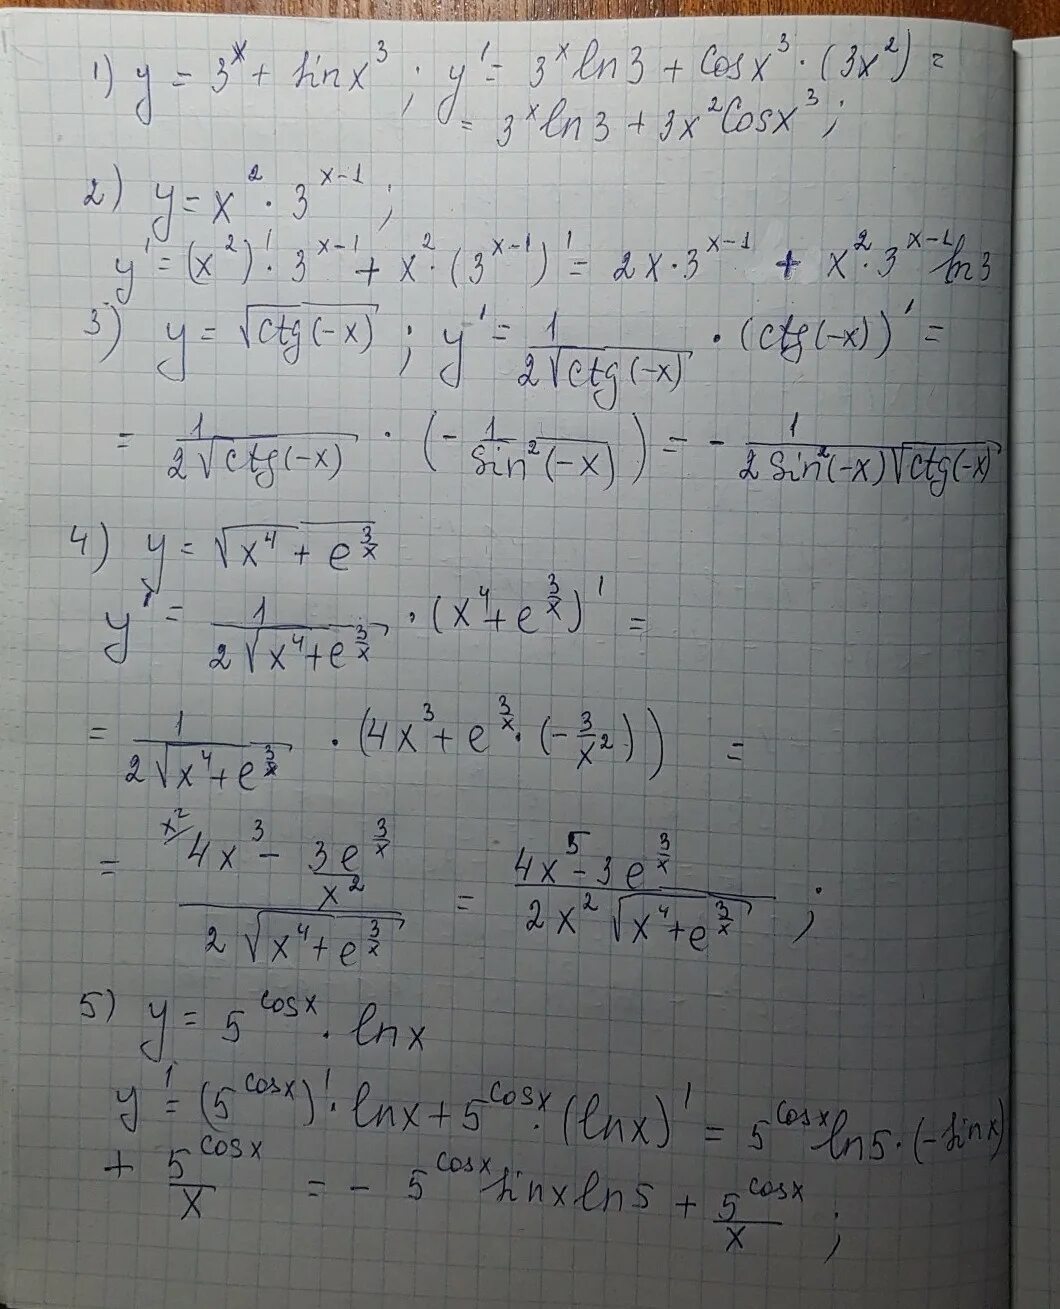 1) y = 3^x + sin x^3 ; y' = 3^x ln3 + cos x^3 · (3x^2) =
= 3^x ln3 + 3x^2 cos x^3 ;
2) y = x^2 · 3^(x-1) ;
y' = (x^2)' · 3^(x-1) + x^2 · (3^(x-1))' = 2x · 3^(x-1) + x^2 · 3^(x-1) ln3
3) y = √(ctg(-x)) ; y' = 1/(2√(ctg(-x))) · (ctg(-x))' =
= 1/(2√(ctg(-x))) · (- 1/(sin^2(-x))) = - 1/(2 sin^2(-x) √(ctg(-x)))
4) y = √(x^4 + e^(3/x))
y' = 1/(2√(x^4 + e^(3/x))) · (x^4 + e^(3/x))' =
= 1/(2√(x^4 + e^(3/x))) · (4x^3 + e^(3/x) · (- 3/x^2)) =
= (x^2/ 4x^3 - 3e^(3/x)/x^2)/(2√(x^4 + e^(3/x))) = (4x^5 - 3e^(3/x))/(2x^2 √(x^4 + e^(3/x))) ;
5) y = 5^(cos x) · ln x
y' = (5^(cos x))' · ln x + 5^(cos x) · (ln x)' = 5^(cos x) ln5 · (-sin x)
+ 5^(cos x)/x = - 5^(cos x) sin x ln5 + 5^(cos x)/x ;